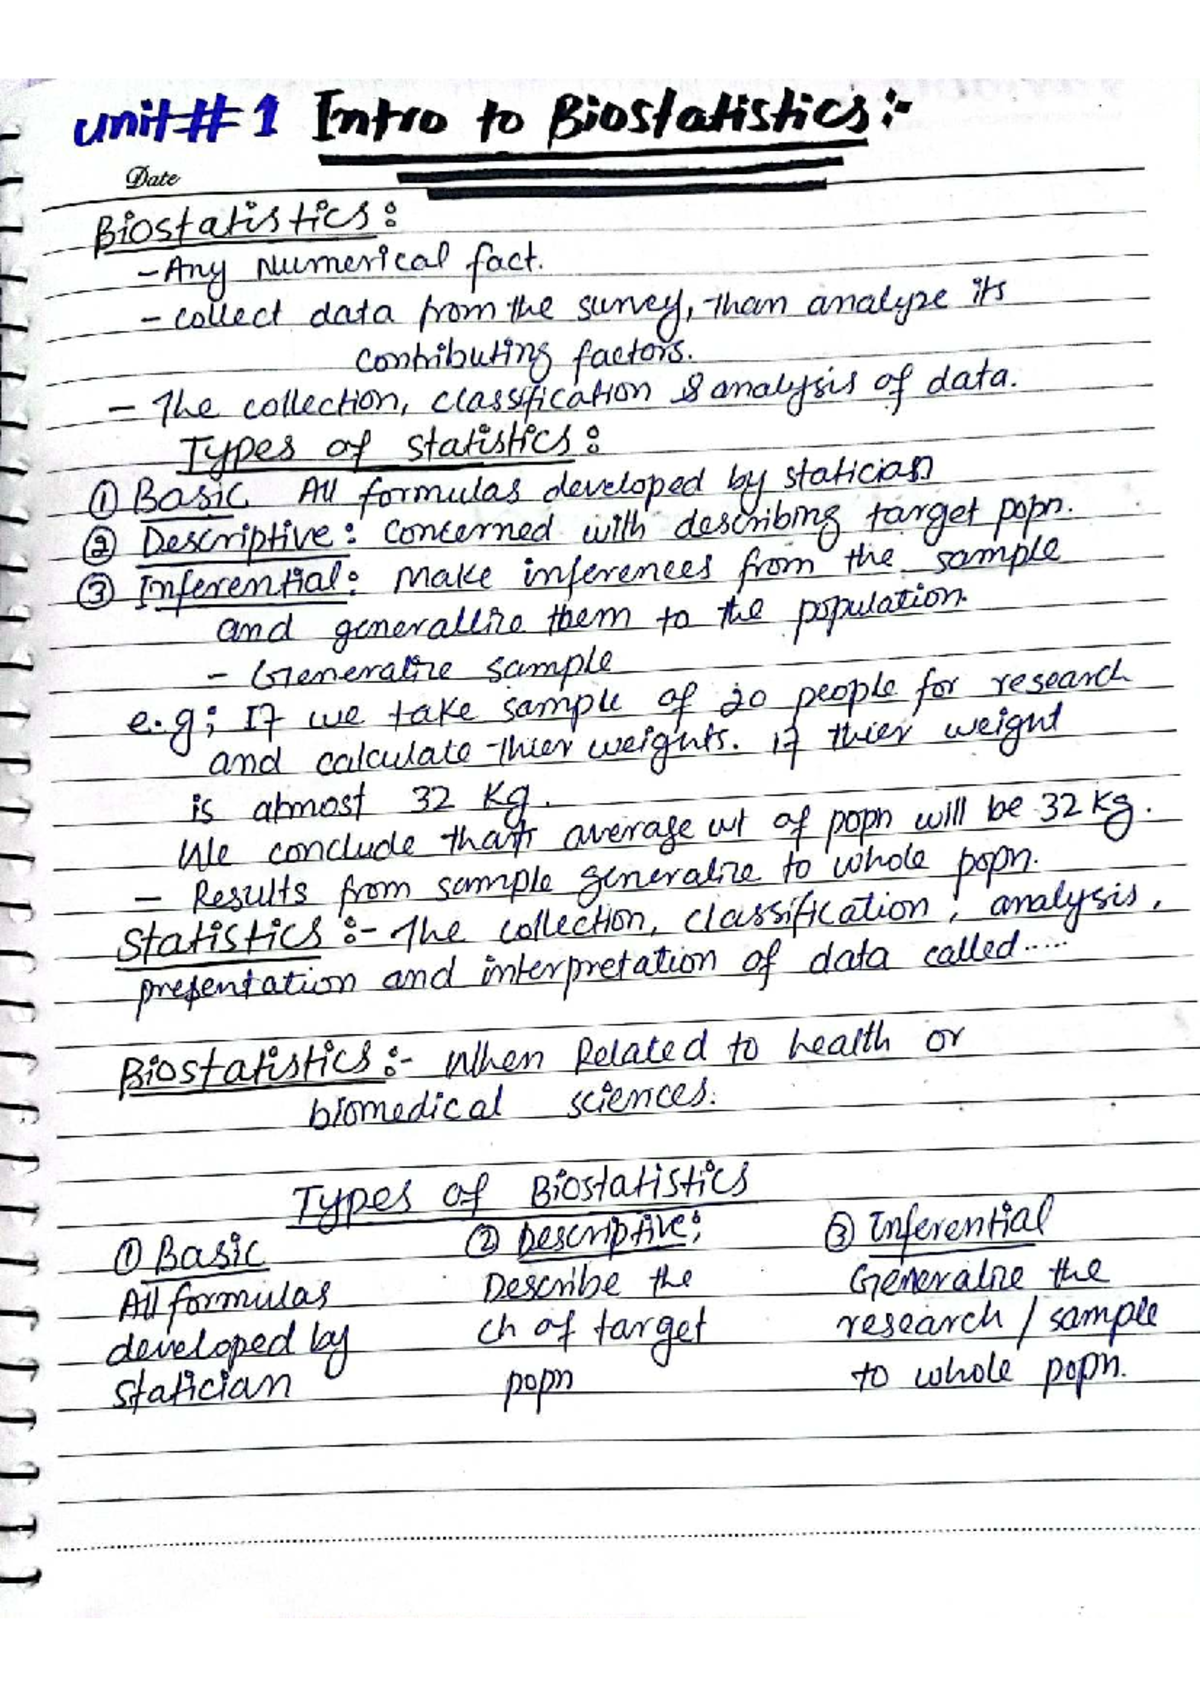 Unit # 1 Intro to Biostatistics :-
Date
Biostatistics :
- Any Numerical fact.
- collect data from the survey, than analyze its
contributing factors.
- The collection, classification & analysis of data.
Types of statistics :
① Basic All formulas developed by statician
② Descriptive : concerned with describing target popn.
③ Inferential : Make inferences from the sample
and generallize them to the population.
- Generalize sample
e.g; If we take sample of 20 people for research
and calculate thier weights. if thier weight
is almost 32 Kg.
We conclude that average wt of popn will be 32 kg.
- Results from sample generalize to whole popn.
Statistics :- The collection, classification, analysis,
presentation and interpretation of data called.....
Biostatistics :- When Related to health or
biomedical sciences.
Types of Biostatistics
① Basic ② Descriptive; ③ Inferential
All formulas Describe the Generalize the
developed by ch of target research / sample
statician popn to whole popn.